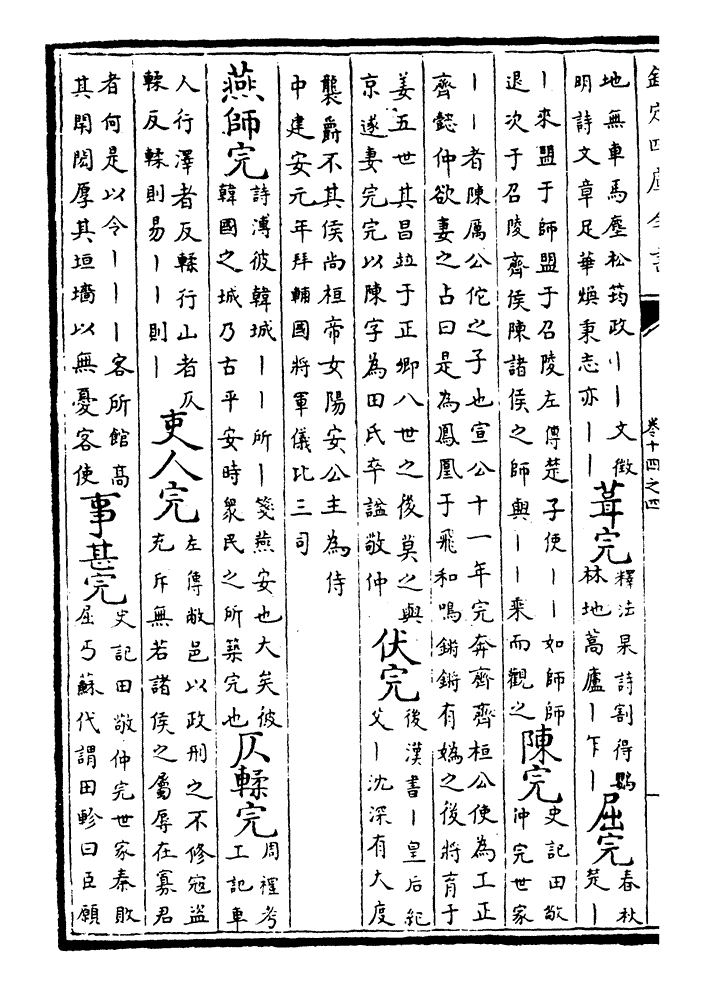 欽定四庫全書
卷十四之四
地無車馬塵松筠政丨丨文徵
明詩文章足華煥秉志亦丨丨
葺完
釋法杲詩割得鸚
林地蒿廬丨乍丨
屈完
春秋
楚丨
丨來盟于師盟于召陵左傳楚子使丨丨如師師
退次于召陵齊侯陳諸侯之師與丨丨乘而觀之
陳完
史記田敬
仲完世家
丨丨者陳厲公佗之子也宣公十一年完奔齊齊桓公使為工正
齊懿仲欲妻之占曰是為鳳凰于飛和鳴鏘鏘有媯之後將育于
姜五世其昌竝于正卿八世之後莫之與
京遂妻完完以陳字為田氏卒諡敬仲
伏完
後漢書丨皇后紀
父丨沈深有大度
襲爵不其侯尚桓帝女陽安公主為侍
中建安元年拜輔國將軍儀比三司
燕師完
詩溥彼韓城丨丨所丨箋燕安也大矣彼
韓國之城乃古平安時衆民之所築完也
仄輮完
周禮考
工記車
人行澤者反輮行山者仄
輮反輮則易丨丨則丨
吏人完
左傳敝邑以政刑之不修寇盜
充斥無若諸侯之屬辱在寡君
者何是以令丨丨丨客所館高
其閈閎厚其垣墻以無憂客使
事甚完
史記田敬仲完世家秦敗
屈丐蘇代謂田軫曰臣願